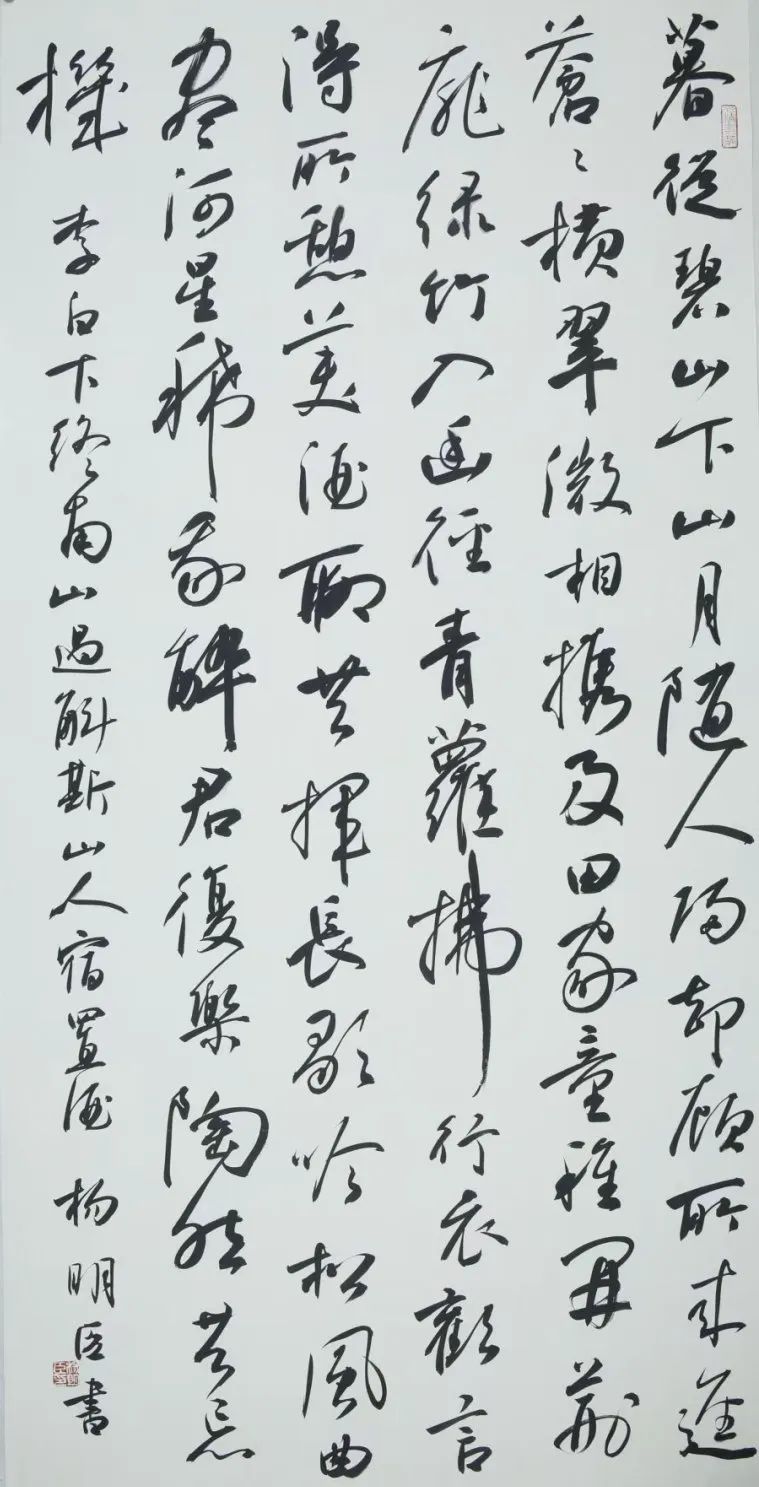 暮從碧山下山月隨人歸却顧所來逕
蒼〻橫翠微相携及田家童稚開荊
扉緑竹入幽徑青蘿拂行衣歡言
得所憩美酒聊共揮長歌吟松風曲
盡河星稀我醉君復樂陶然共忘
機 李白下終南山過斛斯山人宿置酒 楊明臣書